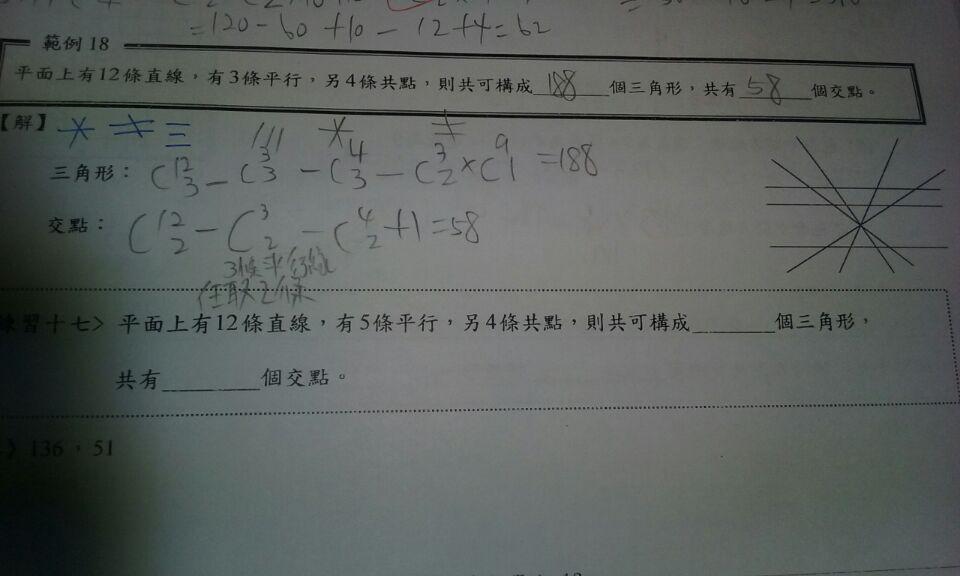 =120-60+10-12+4=62
範例18
平面上有12條直線，有3條平行，另4條共點，則共可構成 188 個三角形，共有 58 個交點。
【解】
三角形： C¹²₃ - C³₃ - C⁴₃ - C³₂×C⁹₁ =188
交點： C¹²₂ - C³₂ - C⁴₂ +1=58
3條平行線
任取2條
練習十七〉平面上有12條直線，有5條平行，另4條共點，則共可構成________個三角形，
共有________個交點。
〉136，51